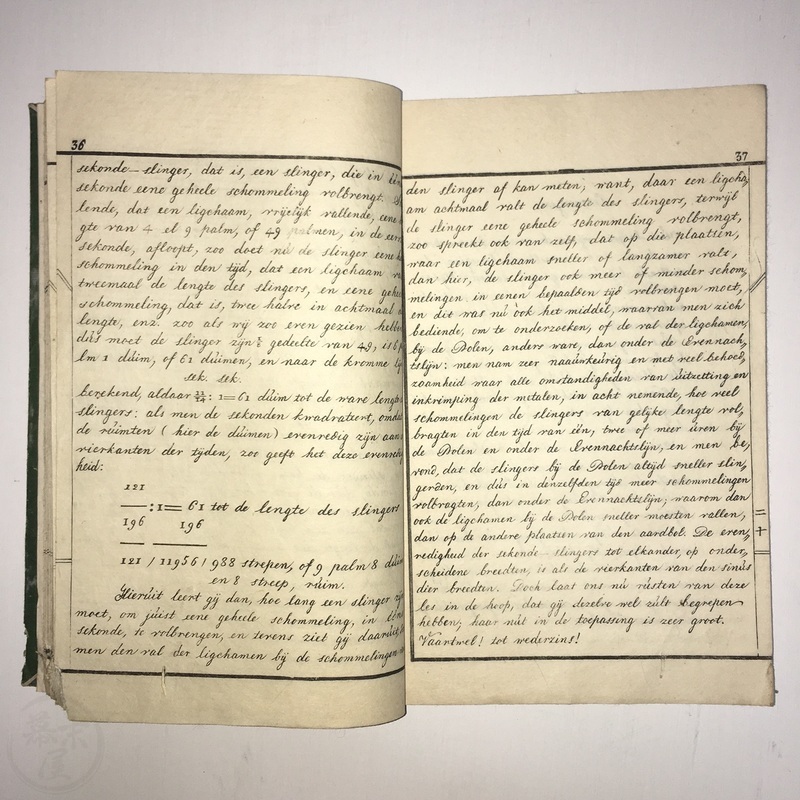 36
sekonde-slinger, dat is, een slinger, die in één
sekonde eene geheele schommeling volbrengt.
lende, dat een ligchaam, vrijelijk vallende, eene
gte van 4 el 9 palm, of 49 palmen, in de eers
sekonde, afloopt, zoo doet nú de slinger eene
schommeling in den tijd, dat een ligchaam
tweemaal de lengte des slingers, en eene gehe
schommeling, dat is, twee halve in achtmaal
lengte, enz. zoo als wij zoo even gezien hebben
dús moet de slinger zijn gedeelte van 49, is 6 p
lm 1 dúim, of 61 dúimen, en naar de kromme
sek. sek.
berekend, aldaar : 1=61 dúim tot de ware lengte
slingers: als men de sekonden kwadrateert, omdat
de rúimten (hier de dúimen) evenredig zijn aan
vierkanten der tijden, zoo geeft het deze evenred
heid:
121
:1= 61 tot de lengte des slingers
196 196
121 / 11956 / 988 strepen, of 9 palm 8 dúim
en 8 streep, rúim.
Hierúit leert gij dan, hoe lang een slinger
moet, om júist eene geheele schommeling, in één
sekonde, te volbrengen, en tevens ziet gij daarúit,
men den val der ligchamen bij de schommelingen
37
den slinger af kan meten; want, daar een ligcha,
am achtmaal valt de lengte des slingers, terwijl
de slinger eene geheele schommeling volbrengt,
zoo spreekt ook van zelf, dat op die plaatsen,
waar een ligchaam sneller of langzamer valt,
dan hier, de slinger ook meer of minder schom,
melingen in eenen bepaalden tijd volbrengen moet,
en dit was nú ook het middel, waarvan men zich
bediende, om te onderzoeken, of de val der ligchamen,
bij de Polen, anders ware, dan onder de Evennach,
tslijn: men nam zeer naaúwkeúrig en met veel behoed,
zaamheid waar alle omstandigheden van úitzetting en
inkrimping der metalen, in acht nemende, hoe veel
schommelingen de slingers van gelijke lengte vol,
bragten in den tijd van één, twee of meer úren bij
de Polen en onder de Evennachtslijn, en men be,
vond, dat de slingers bij de Polen altijd sneller slin,
gerden, en dús in denzelfden tijd meer schommelingen
volbragten, dan onder de Evennachtslijn; waarom dan
ook de ligchamen bij de Polen sneller moesten vallen,
dan op de andere plaatsen van den aardbol. De even,
redigheid der sekonde-slingers tot elkander, op onder,
scheidene breedten, is als de vierkanten van den sinús
dier breedten. Doch laat ons nú rústen van deze
les in de hoop, dat gij dezelve wel zúlt begrepen
hebben; haar nút in de toepassing is zeer groot.
Vaartwel! tot wederzins!